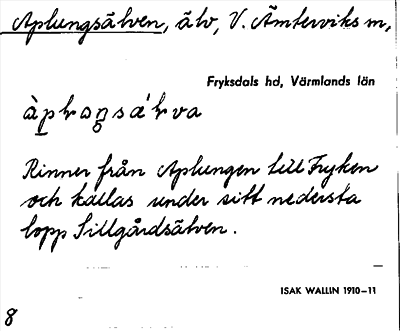 Aplungsälven, älv, V. Ämterviks sn,
Fryksdals hd, Värmlands län
Rinner från Aplungen till Fryken
och kallas under sitt nedersta
lopp Sillgårdsälven.
ISAK WALLIN 1910–11
8